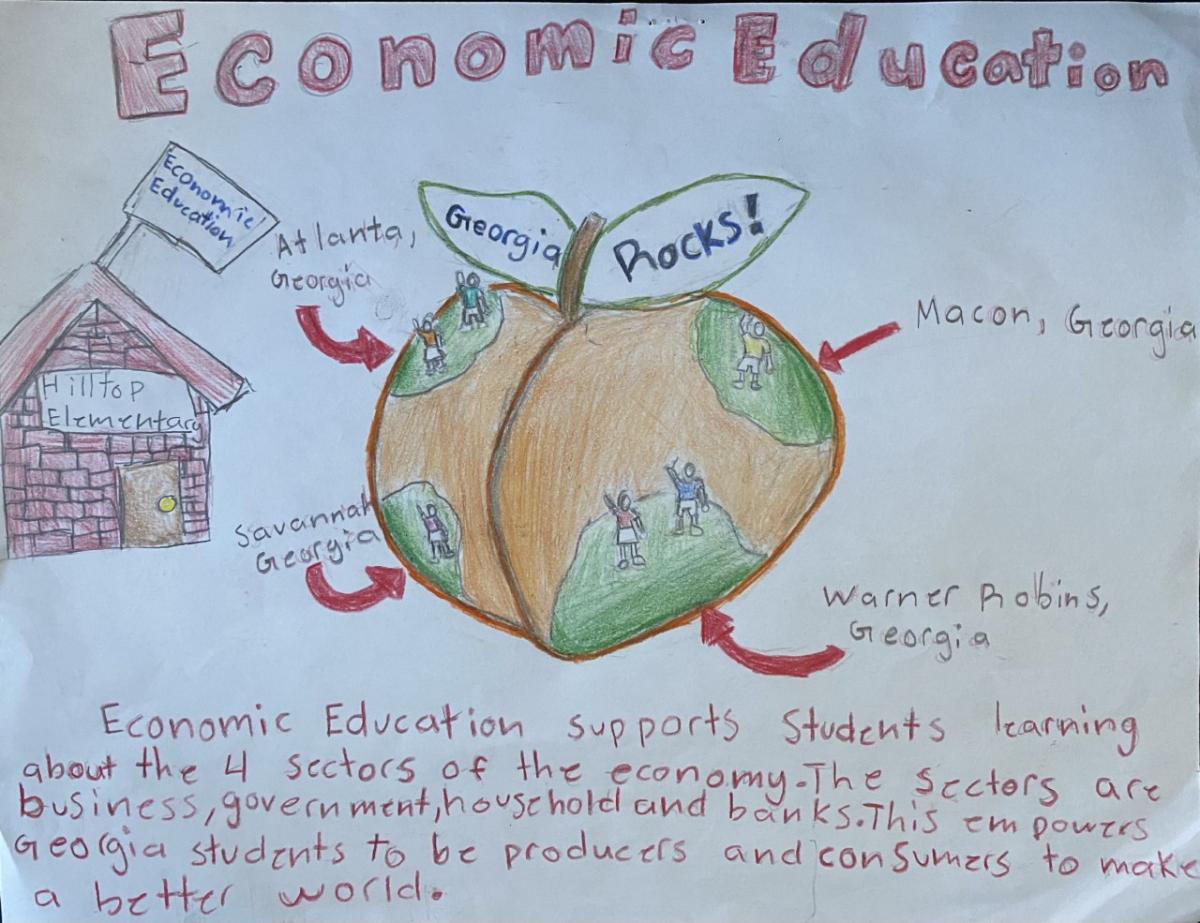 Economic Education
Economic
Education
Atlanta,
Georgia
Georgia
Rocks!
Macon, Georgia
Hilltop
Elementary
Savannah
Georgia
Warner Robins,
Georgia
Economic Education supports Students learning
about the 4 sectors of the economy. The Sectors are
business, government, household and banks. This empowers
Georgia students to be producers and consumers to make
a better world.